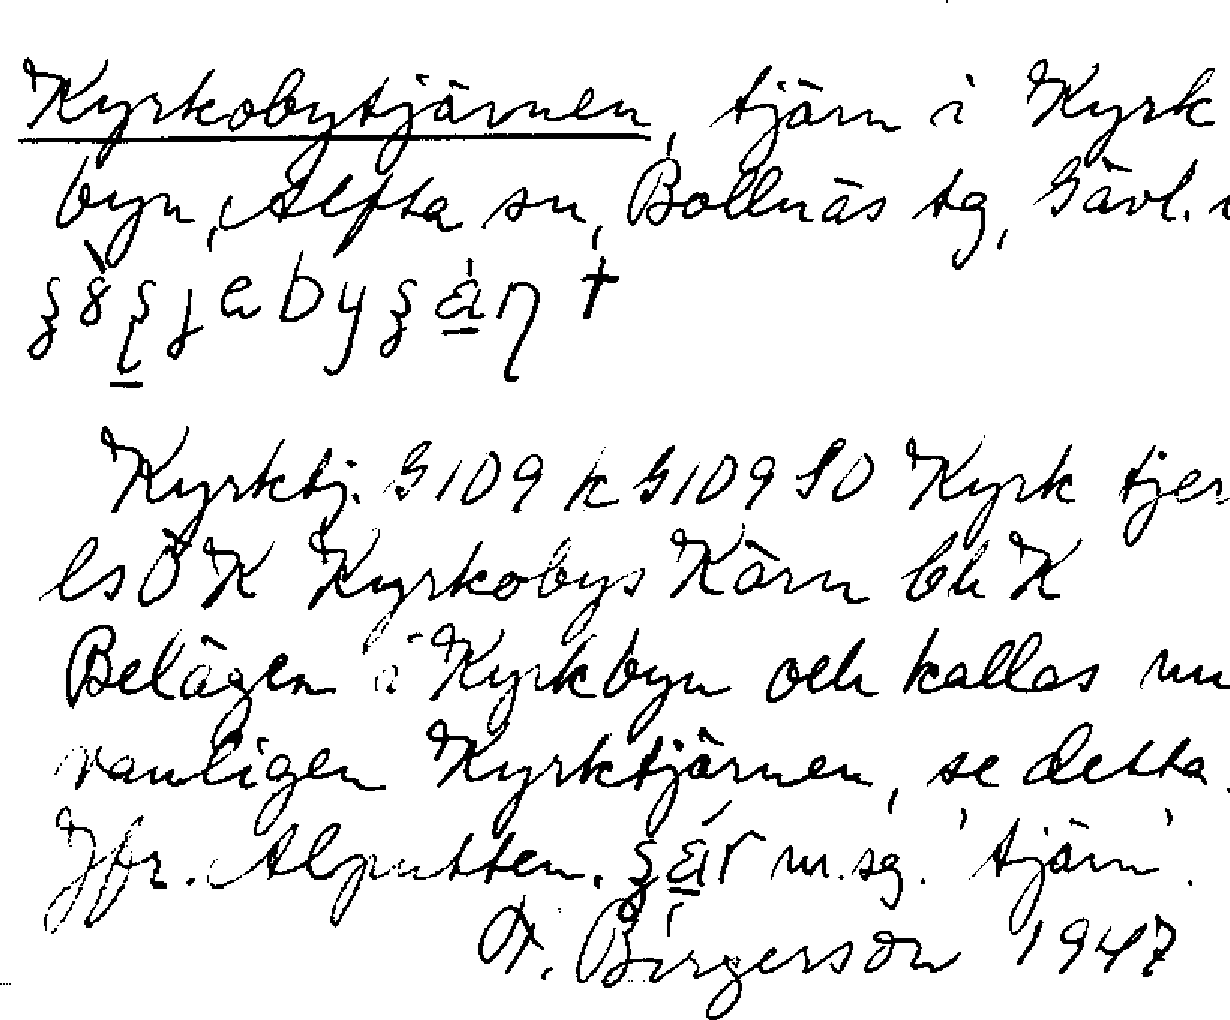 Kyrkobytjärnen, tjärn i Kyrk
byn, Alfta sn, Bollnäs tg, Gävl.
Kyrktj. G109 k G109 SO Kyrk tjer
ls Ö K Kyrkobys Kärn bh K
Belägen i Kyrkbyn och kallas nu
vanligen Kyrktjärnen, se detta.
Jfr. Alputten. m.sg. 'tjärn'.
A. Birgerson 1947